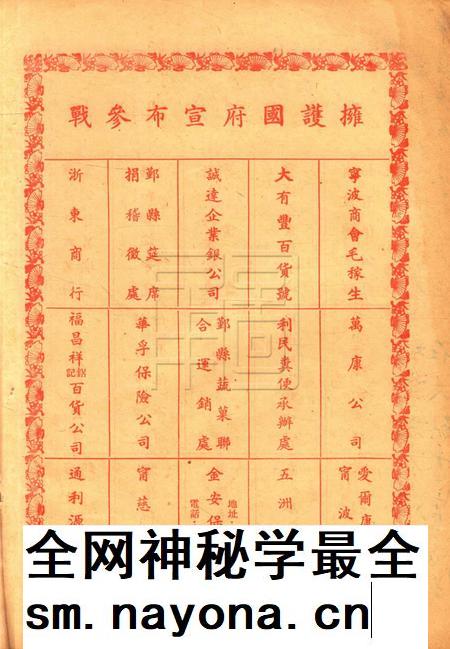 擁護國府宣布參戰
寧波商會毛稼生
大有豐百貨號
誠達企業銀公司
鄞縣筵席
捐稽徵處
浙東商行
萬康公司
利民糞便承辦處
鄞縣蔬菓聯
合運銷處
華孚保險公司
福昌祥記百貨公司
愛爾
甯波
五洲
地址
金安保
電話
甯慈
通利源
全网神秘学最全
sm.nayona.cn